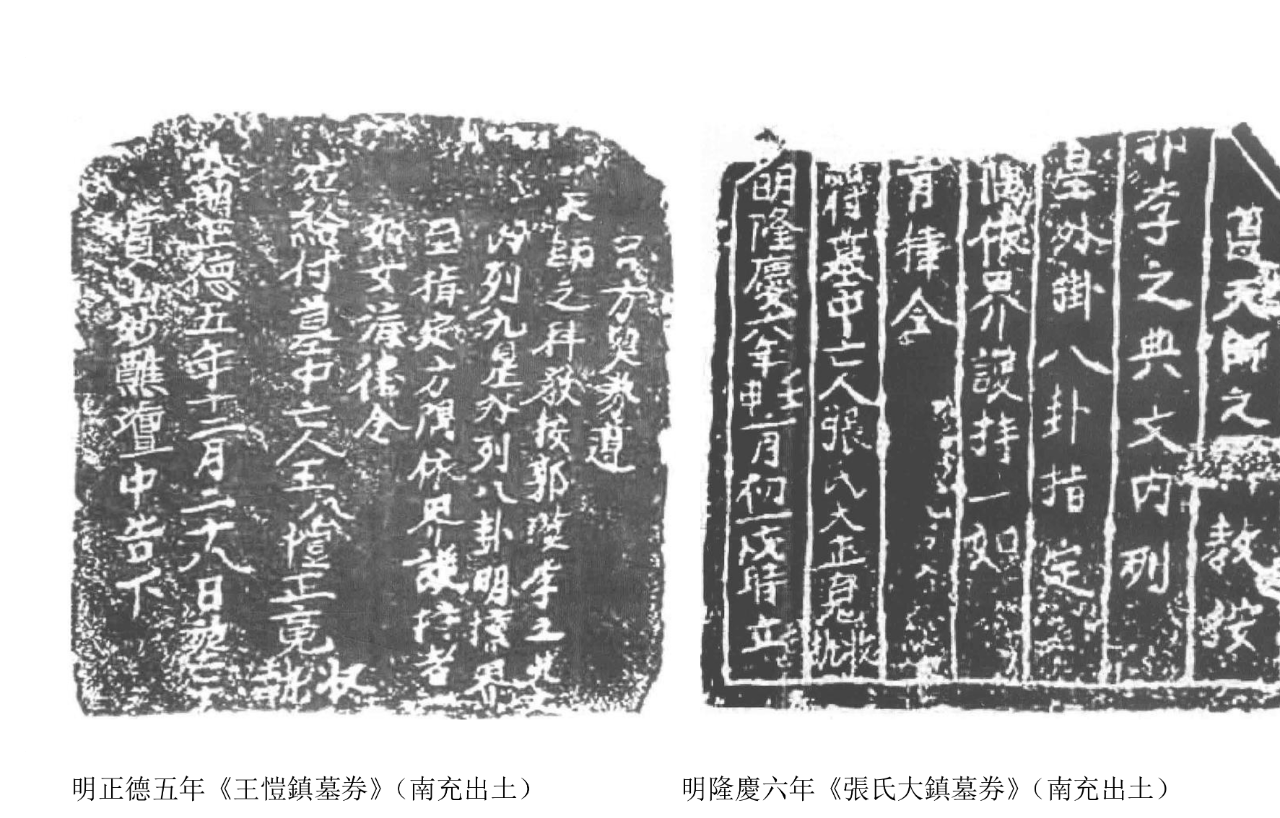 呂方與券遵
天師之科教按郭璞李王典
內列九星外列八卦明標界
至指定方隅依界護持者
如女青律令
右給付墓中亡人王公愷正竟
收
執照
大明正德五年十二月二十八日
真山妙醮壇中告下
遵天師之
教按
郭李之典文內列
星外掛八卦指定
隅依界護持一如
青律令
符墓中亡人張氏大正竟
收
執
明隆慶六年壬申一月初一戊時立
明正德五年《王愷鎮墓券》（南充出土）
明隆慶六年《張氏大鎮墓券》（南充出土）